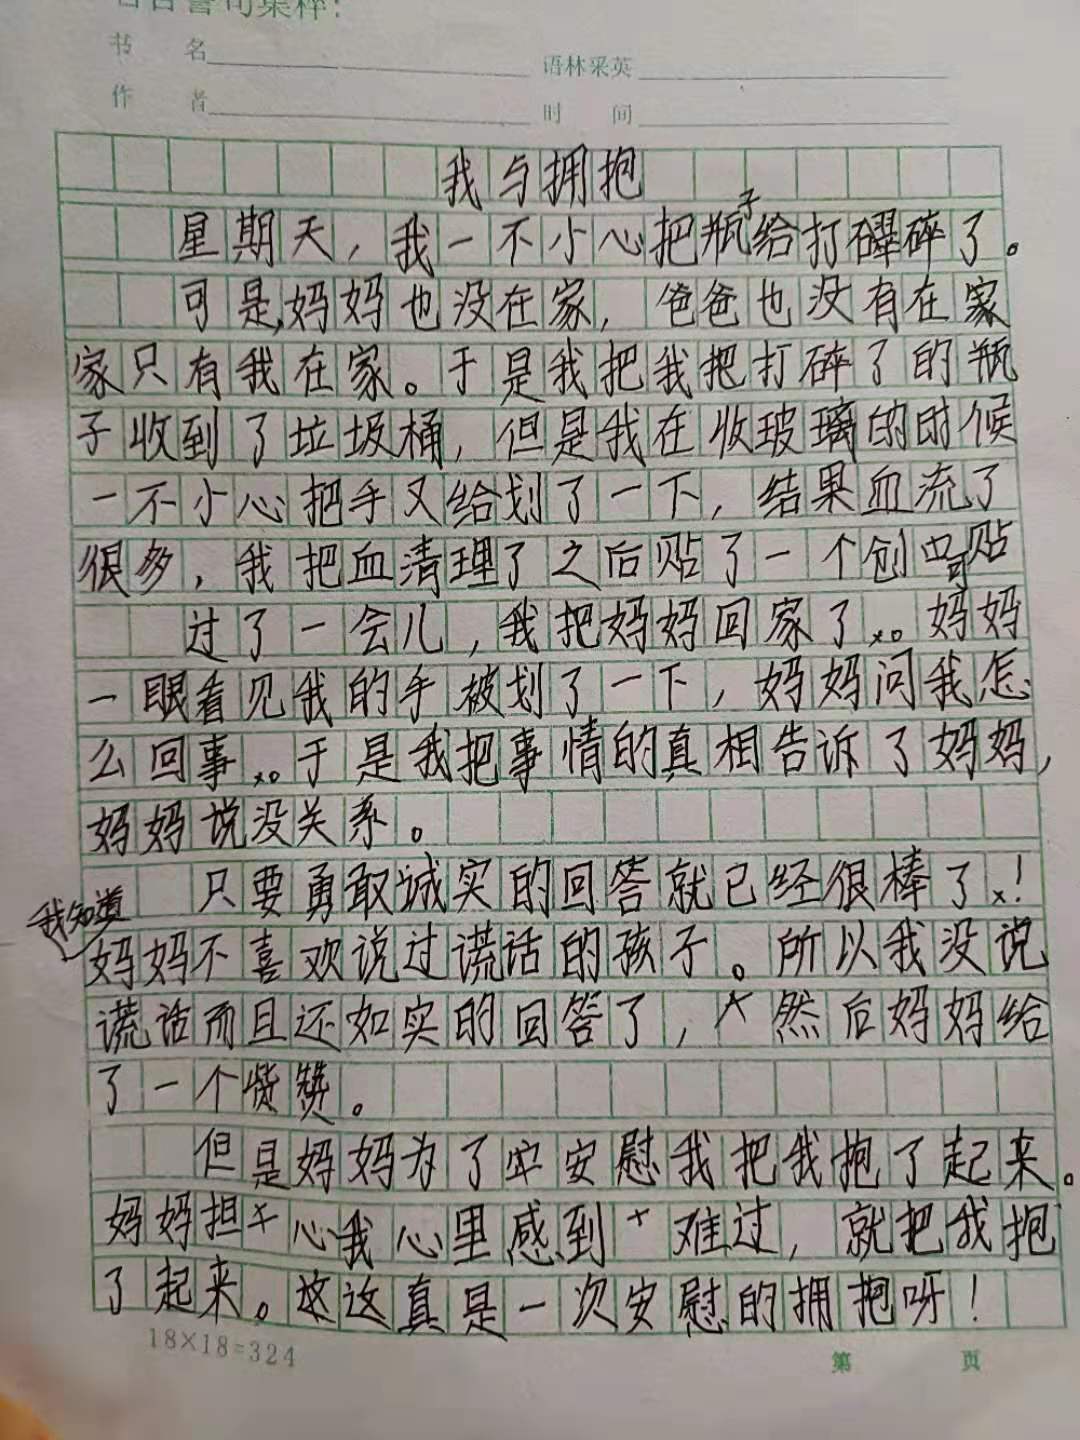 名言警句集粹：
书 名 语林采英
作 者 时 间
我与拥抱
星期天，我一不小心把瓶子给打碎了。
可是,妈妈也没在家，爸爸也没有在家
家只有我在家。于是我把我把打碎了的瓶
子收到了垃圾桶，但是我在收玻璃的时候
一不小心把手又给划了一下，结果血流了
很多，我把血清理了之后贴了一个创口可贴
过了一会儿，我把妈妈回家了。妈妈
一眼看见我的手被划了一下，妈妈问我怎
么回事。于是我把事情的真相告诉了妈妈，
妈妈说没关系。
只要勇敢诚实的回答就已经很棒了！
我知道妈妈不喜欢说过谎话的孩子。所以我没说
谎话而且还如实的回答了，然后妈妈给
了一个赞。
但是妈妈为了安慰我把我抱了起来。
妈妈担心我心里感到难过，就把我抱
了起来。这这真是一次安慰的拥抱呀！
18×18=324 第 页